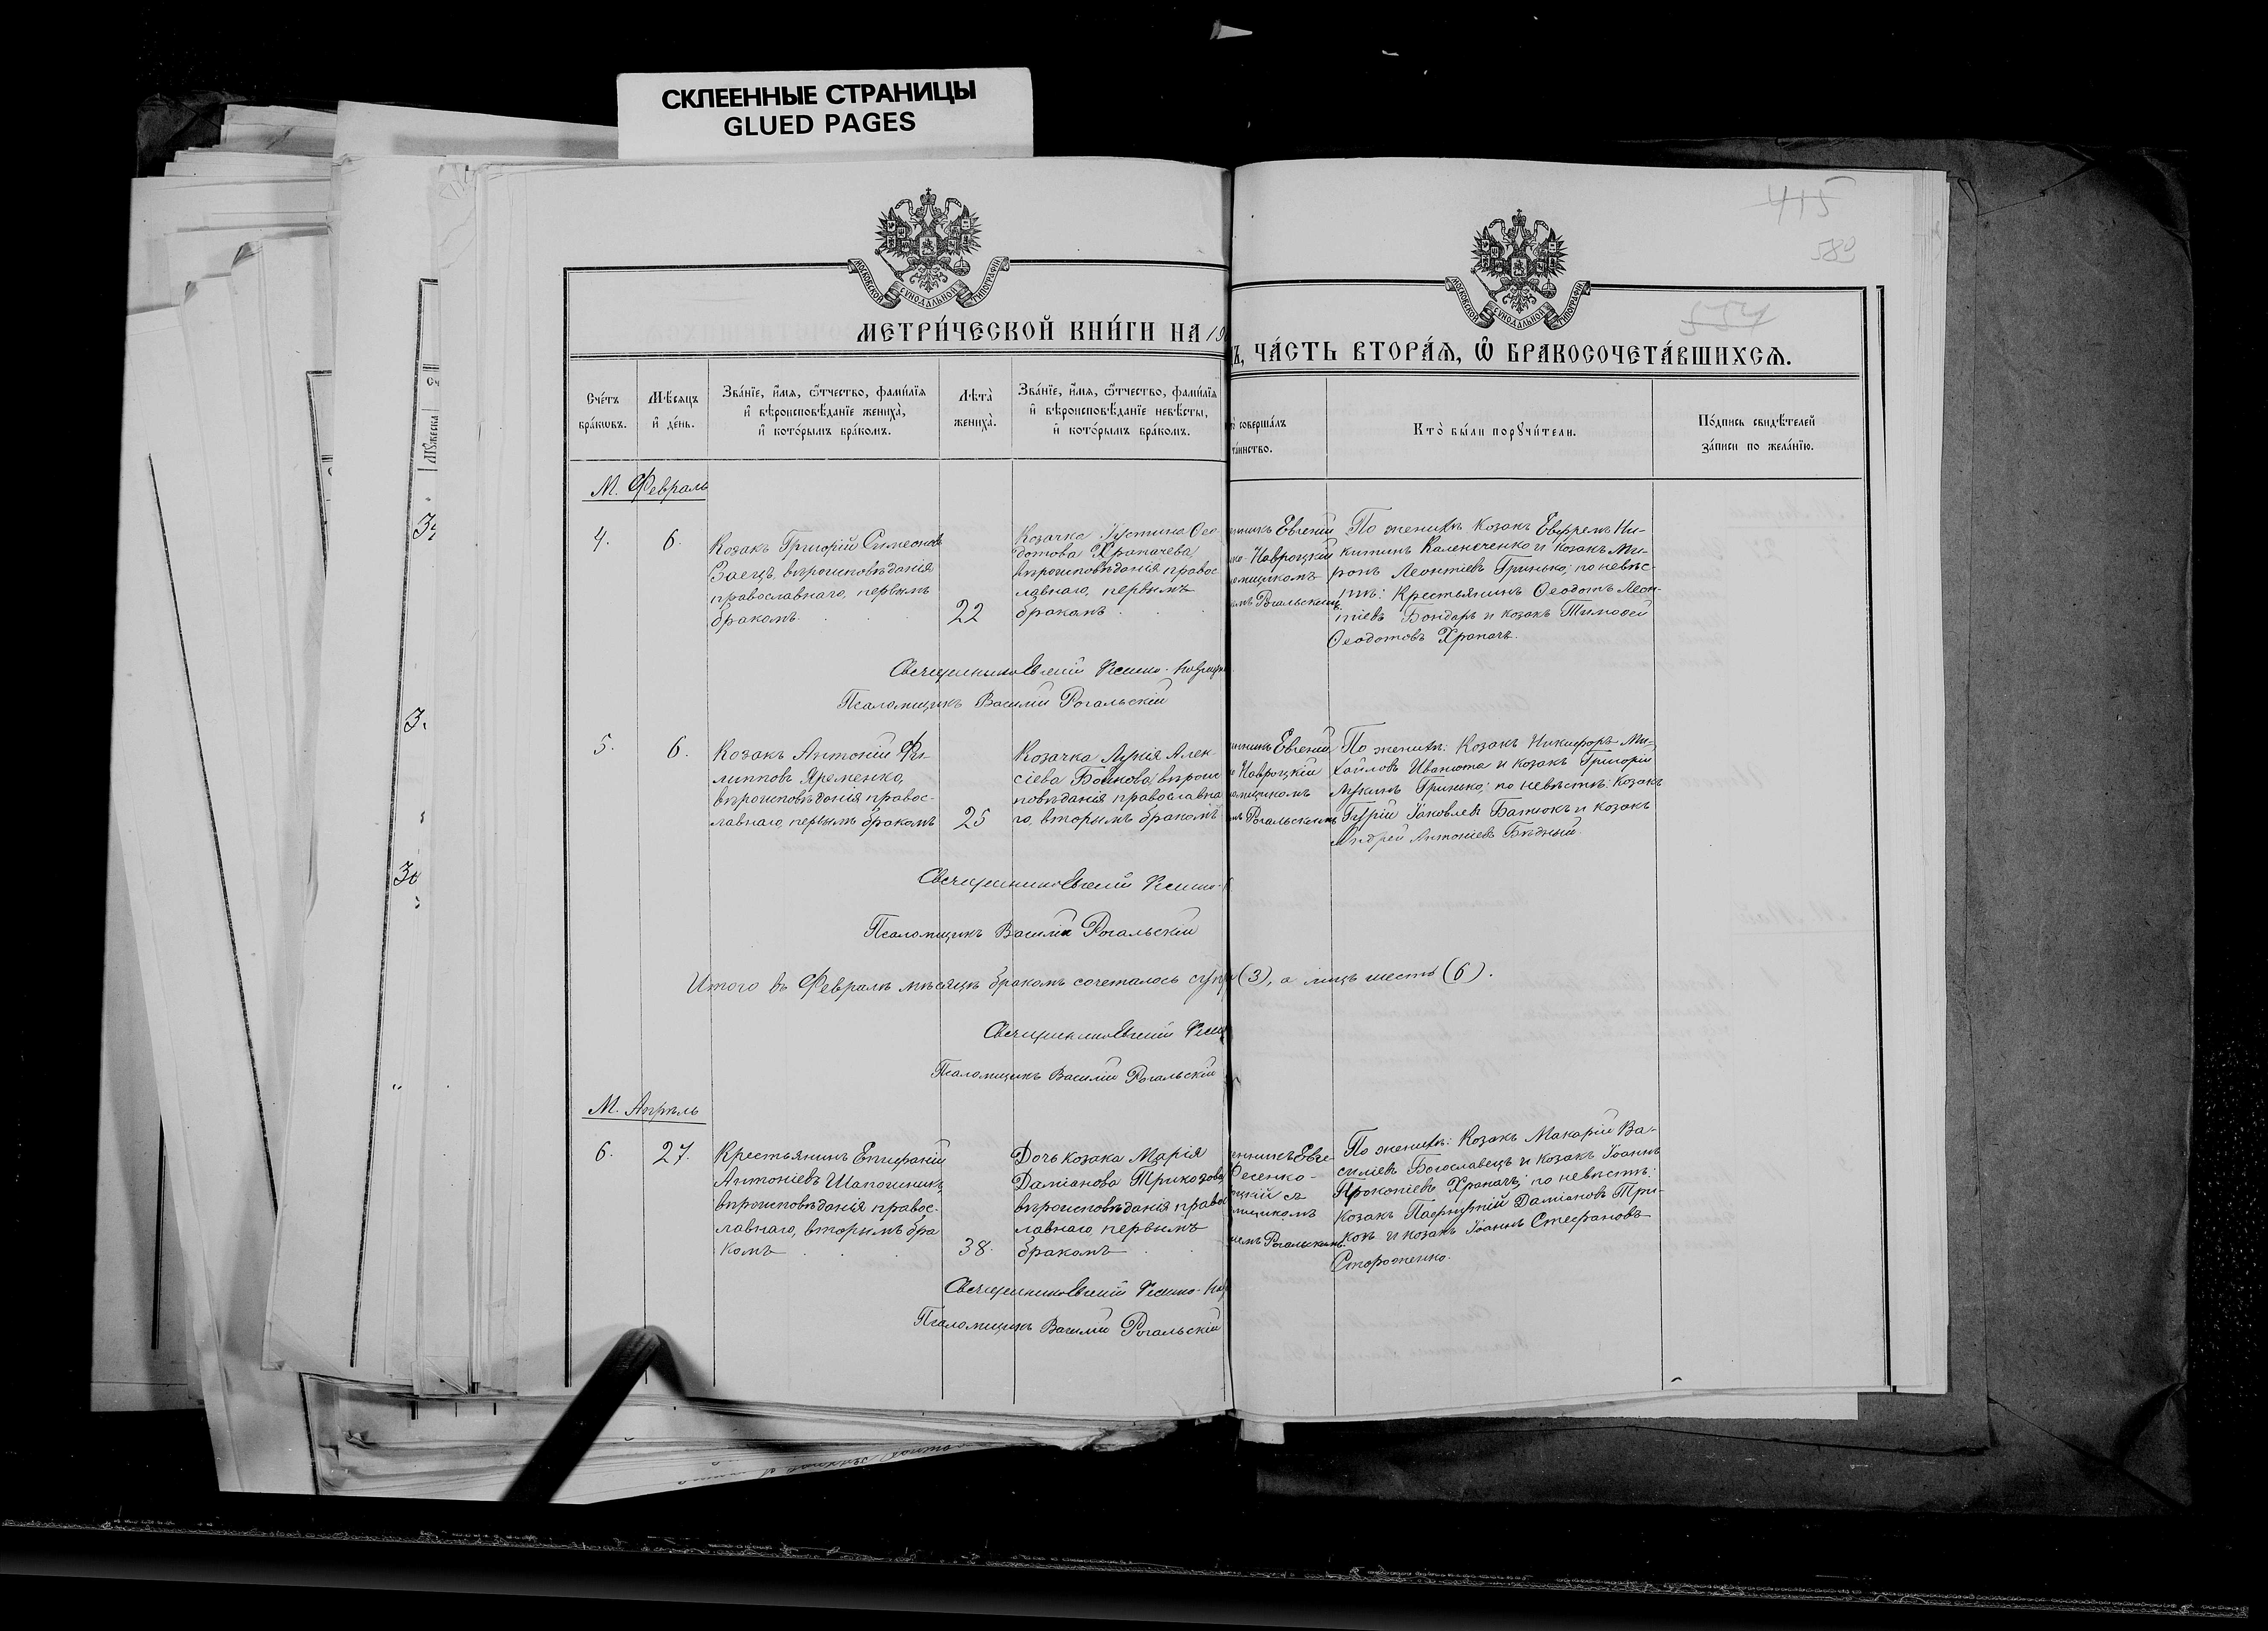 СКЛЕЕННЫЕ СТРАНИЦЫ
GLUED PAGES
415
583
554
МОСКОВСКОЙ СѴНОДАЛЬНОЙ ТИПОГРАФІИ
МОСКОВСКОЙ СѴНОДАЛЬНОЙ ТИПОГРАФІИ
МЕТРИ́ЧЕСКОЙ КНИ́ГИ НА 19
Ъ, ЧА́СТЬ ВТОРА́Ѧ, Ѽ БРАКОСОЧЕТА́ВШИХСѦ.
Сче́тъ бра́кѡвъ.
Мѣ́сяцъ и҆ де́нь.
Зва́нїе, и҆́мѧ, ѻ҆́тчество, фами́лїѧ
и҆ вѣроисповѣ́данїе жениха̀,
и҆ кото́рымъ бра́комъ.
Лѣта̀ жениха̀.
Зва́нїе, и҆́мѧ, ѻ҆́тчество, фами́лїѧ
и҆ вѣроисповѣ́данїе невѣ́сты,
и҆ кото́рымъ бра́комъ.
о̀ соверша́лъ
та́инство.
Кто̀ бы́ли порꙋчи́тели.
По́дпись свидѣ́телей
за́писи по жела́нїю.
М. Февраль
4.
6.
Козакъ Григорій Симеоновъ
Заецъ, вѣроисповѣданія
православнаго, первымъ
бракомъ.
22
Козачка Іустина Ѳео-
дотова Храпачева,
вѣроисповѣданія правос-
лавнаго, первымъ
бракомъ.
Евгеній
Навроцкій
Рогальскимъ
По женихѣ Козакъ Евфремъ Ни-
китинъ Каленченко и козакъ Ми-
ронъ Леонтіевъ Гринько; по невѣс-
тѣ: Крестьянинъ Ѳеодотъ Леон-
тіевъ Бондарь и козакъ Тимоѳей
Ѳеодотовъ Храпачъ.
Священникъ Евгеній Фесенко-Навроц
Псаломщикъ Василій Рогальскій
5.
6.
Козакъ Антоній Фи-
липповъ Яременко,
вѣроисповѣданія правос-
лавнаго, первымъ бракомъ
25
Козачка Лукія Алек-
сіева Бойкова, вѣроис-
повѣданія православна-
го, вторымъ бракомъ
Евгеній
Навроцкій
Рогальскимъ
По женихѣ: Козакъ Никифоръ Ми-
хайловъ Иванюта и козакъ Григорій
Лукинъ Гринько; по невѣстѣ: Козакъ
Гурій Іаковлевъ Батюкъ и козакъ
Андрей Антоніевъ Бѣдный.
Священникъ Евгеній Фесенко-
Псаломщикъ Василій Рогальскій
Итого въ Февралѣ мѣсяцѣ бракомъ сочеталось супр (3), а лицъ шесть (6).
Священникъ Евгеній Фесе
Псаломщикъ Василій Рогальскій
М. Апрѣль
6.
27.
Крестьянинъ Епифаній
Антоніевъ Шапошникъ,
вѣроисповѣданія правос-
лавнаго, вторымъ бра
комъ
38.
Дочь козака Марія
Даміанова Трикозова,
вѣроисповѣданія правос
лавнаго, первымъ
бракомъ
енникъ Евге-
Фесенко-
оцкій съ
мщикомъ
Рогальскимъ
По женихѣ: Козакъ Макарій Ва-
силіевъ Богославецъ и козакъ Іоаннъ
Прокопіевъ Храпачъ; по невѣстѣ:
Козакъ Пафнутій Даміановъ Три-
козъ и козакъ Іоаннъ Стефановъ
Стороженко.
Священникъ Евгеній Фесенко-Нав
Псаломщикъ Василій Рогальскій